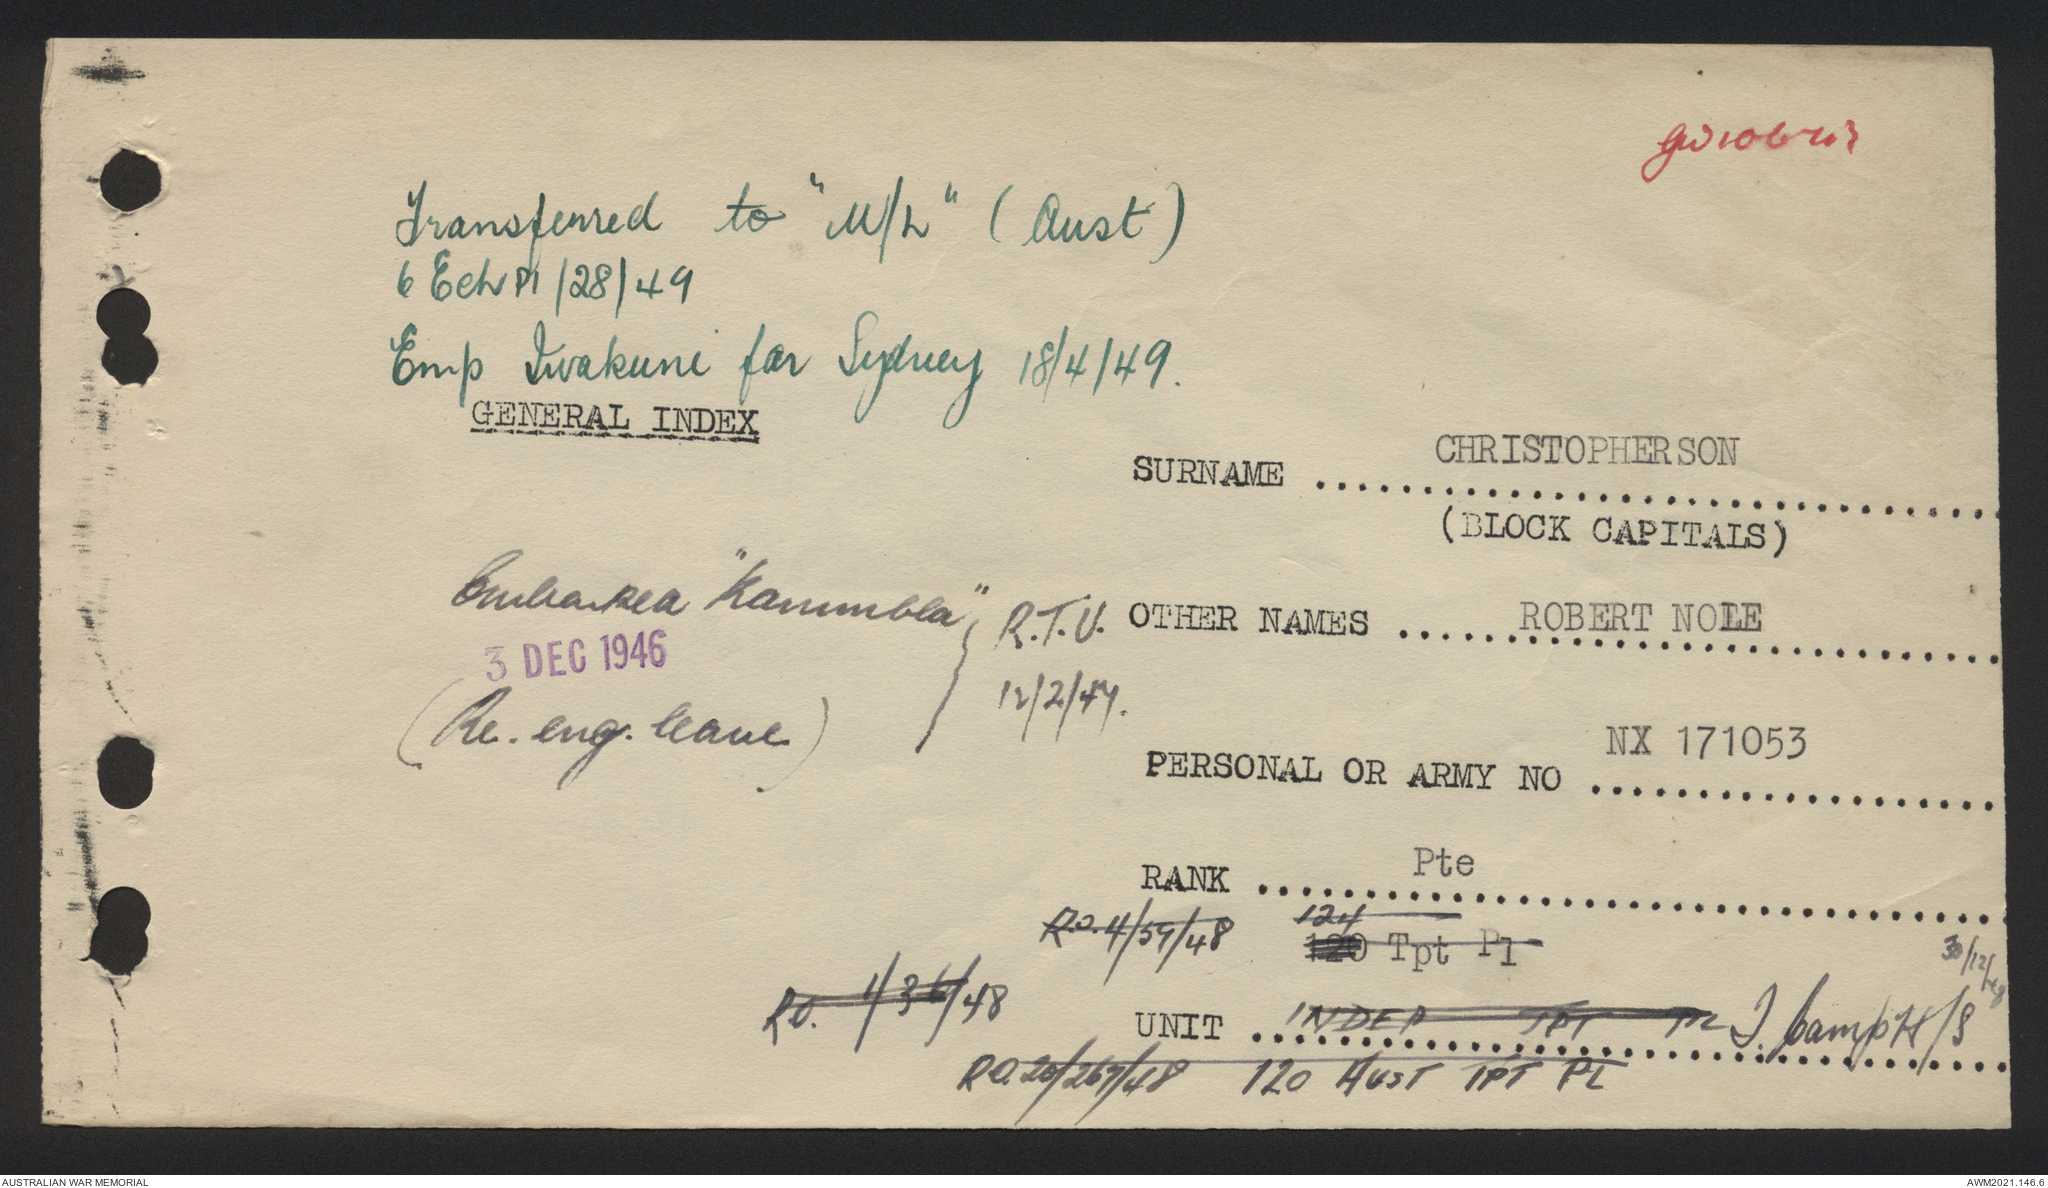 Transferred to "M/L" (Aust)
6 Ech Pl/28/49
Emp Iwakuni for Sydney 18/4/49.
GENERAL INDEX
SURNAME .......... CHRISTOPHERSON
(BLOCK CAPITALS)
Embarked "Kanimbla"
3 DEC 1946
(Re. eng. leave)
R.T.U.
12/2/47.
OTHER NAMES .......... ROBERT NOLE
PERSONAL OR ARMY NO .......... NX 171053
RANK .......... Pte
R.O. 4/59/48 124
120 Tpt Pl
30/12/48
R.O. 1/36/48
UNIT .......... INDEP TPT PL J. Camp H/S
R.O. 20/267/48 120 AUST TPT PL
AUSTRALIAN WAR MEMORIAL
AWM2021.146.6